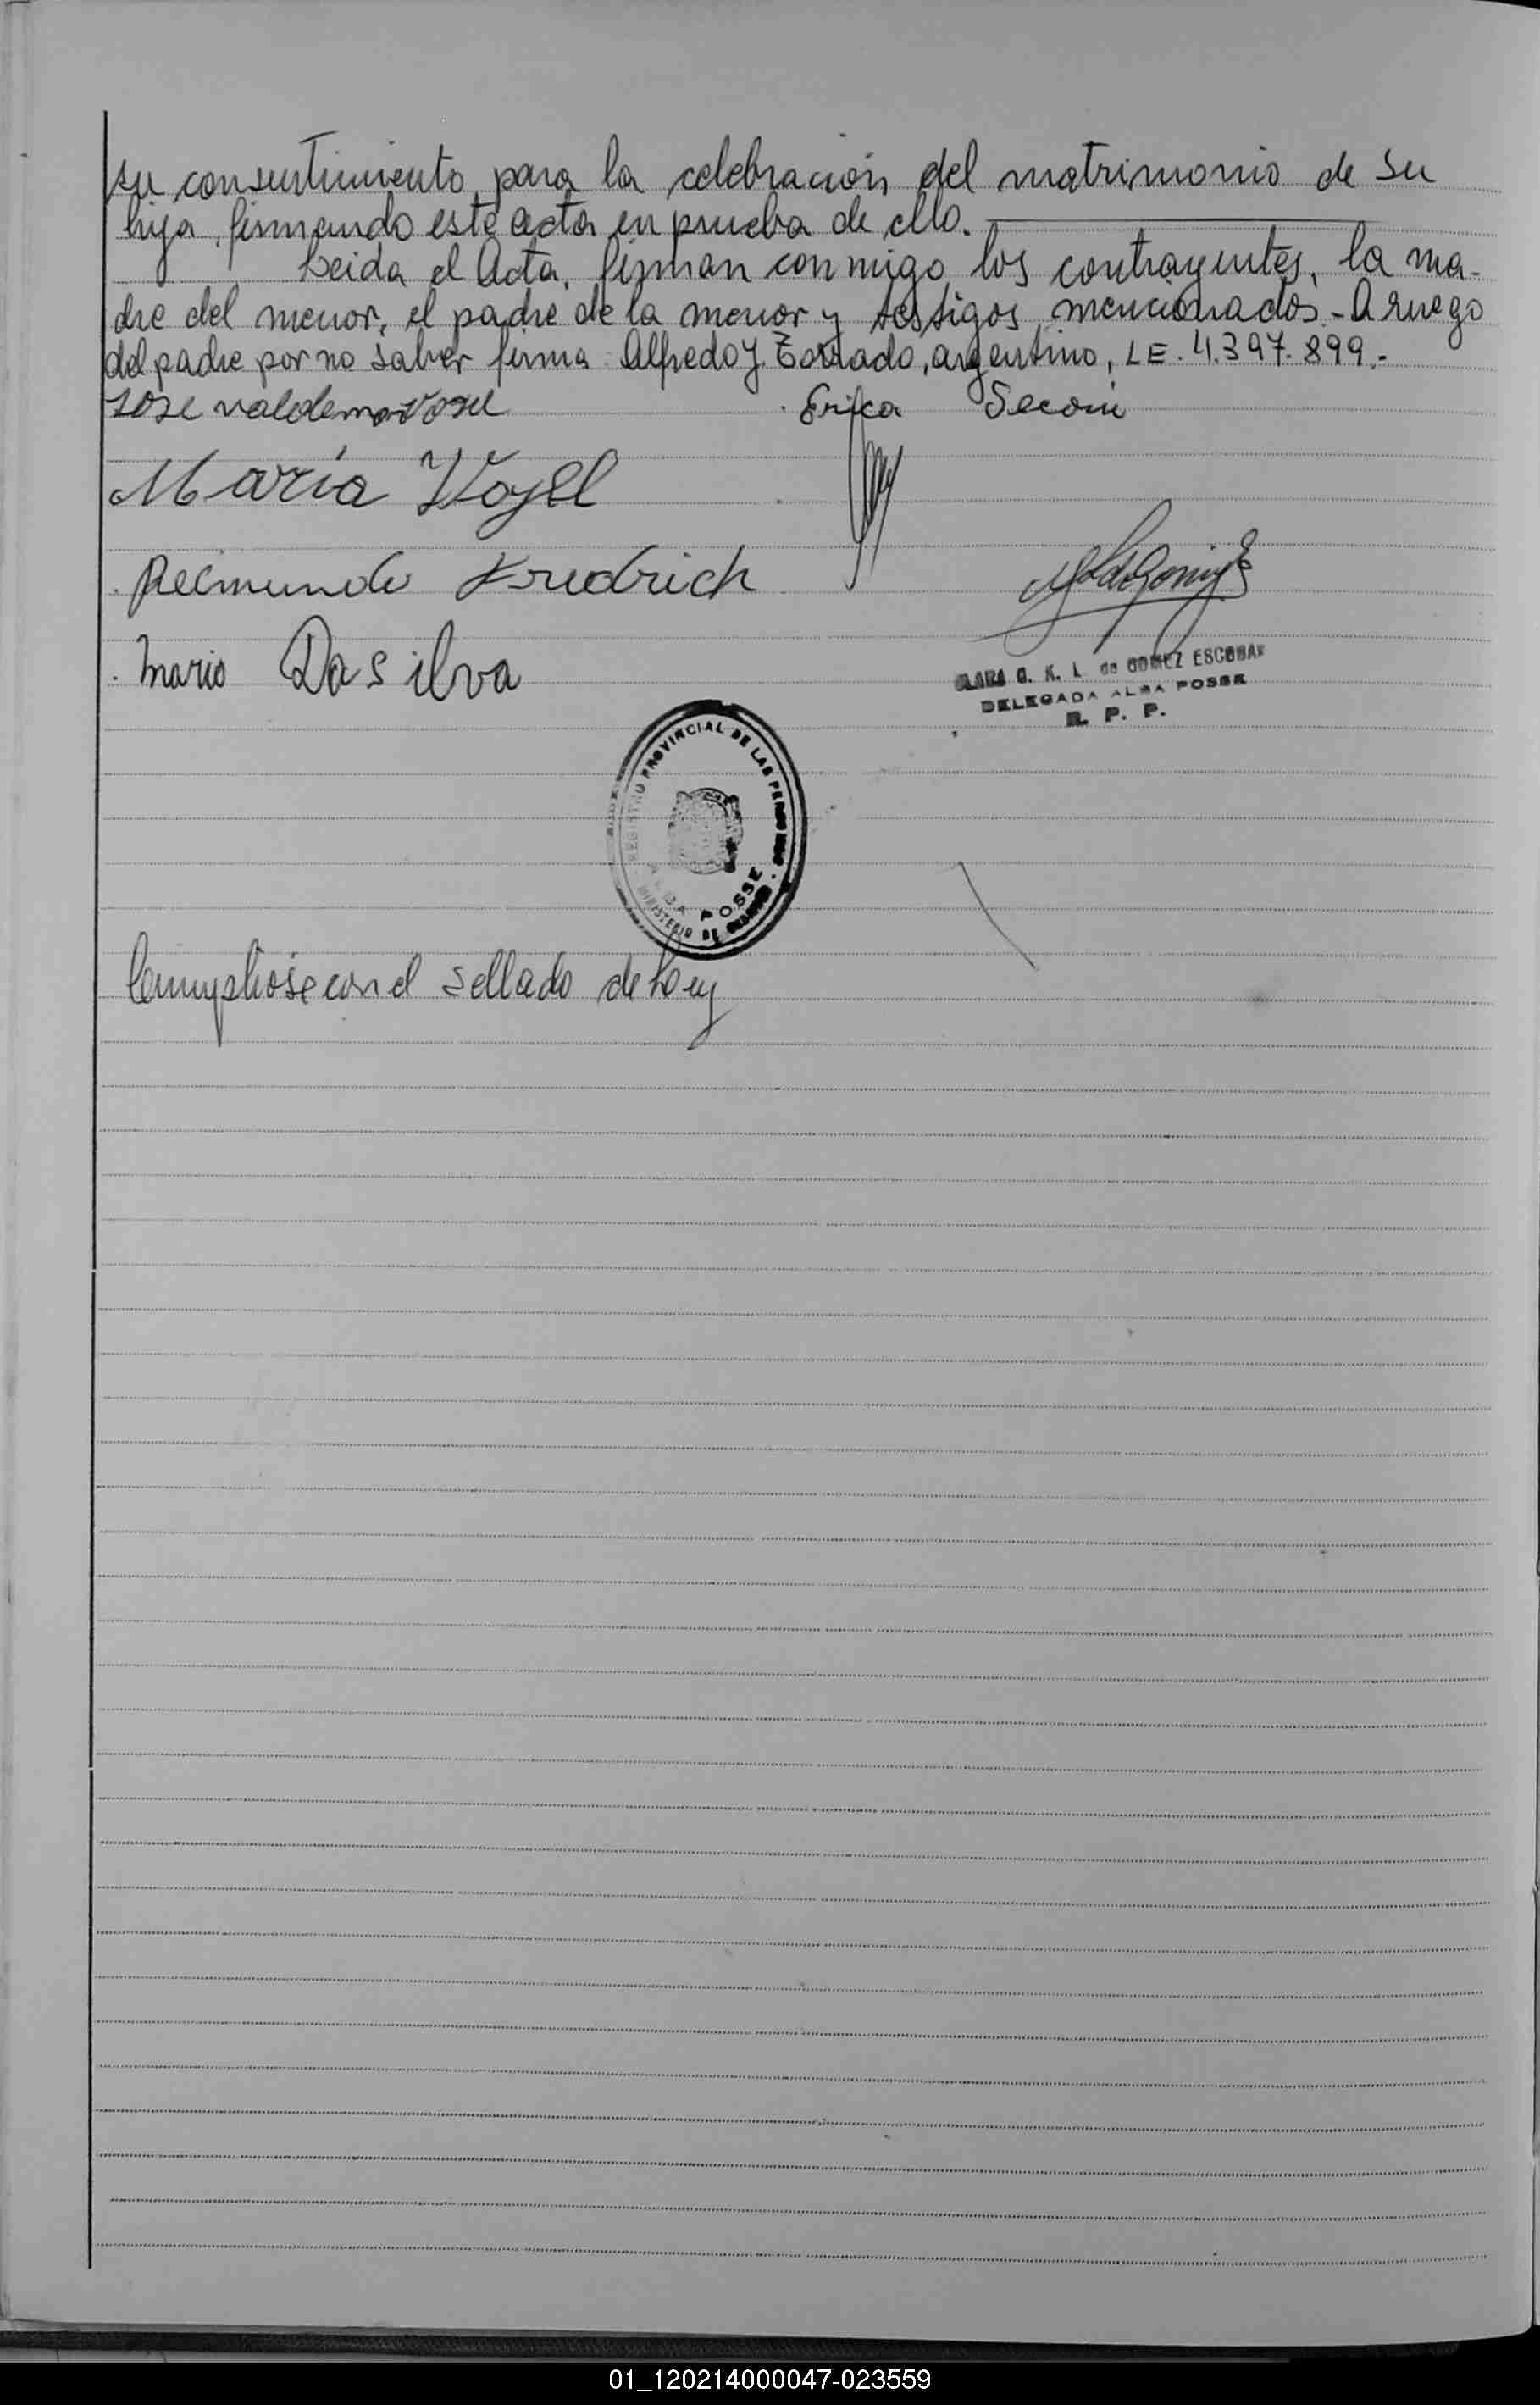 su consentimiento para la celebración del matrimonio de su
hija, firmando este acta en prueba de ello.
Leida el Acta, firman conmigo los contrayentes, la ma-
dre del menor, el padre de la menor y testigos mencionados.- A ruego
del padre por no saber firma Alfredo J. , argentino, LE. 4.397.899.-
Jose valdemar Vogel Erica
María Vogel
Reimundo Fredrich
Mario Dasilva
CLARA G. K. L de GOMEZ ESCOBAR
DELEGADA ALBA POSSE
R. P. P.
REGISTRO PROVINCIAL DE LAS PERSONAS
ALBA POSSE
MINISTERIO DE
Cumpliose con el sellado de Ley
01_120214000047-023559